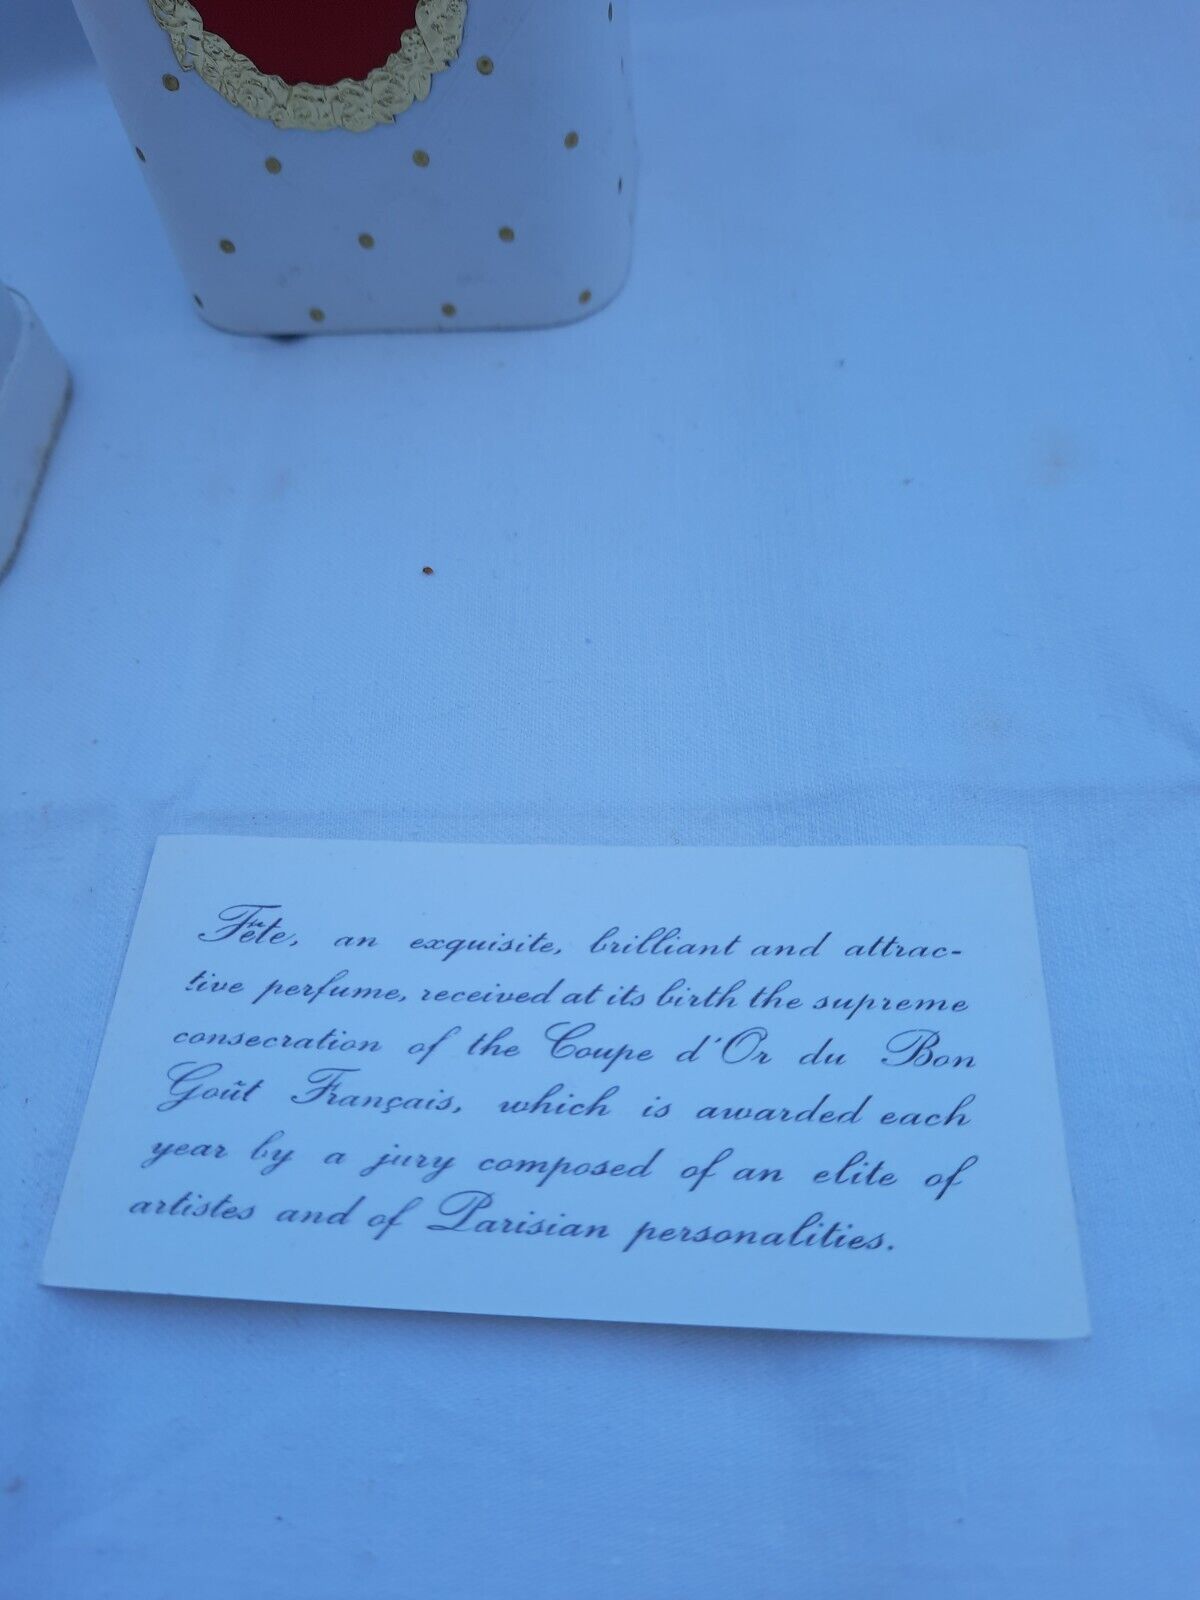 Fête, an exquisite, brilliant and attrac-
tive perfume, received at its birth the supreme
consecration of the Coupe d'Or du Bon
Goût Français, which is awarded each
year by a jury composed of an elite of
artistes and of Parisian personalities.